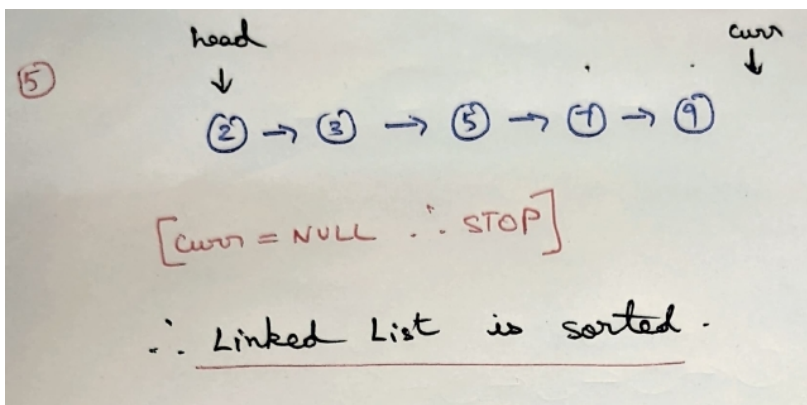 head curr
⑤ ↓ ↓
② → ③ → ⑤ → ⑦ → ⑨
[curr = NULL ∴ STOP]
∴ Linked List is sorted.